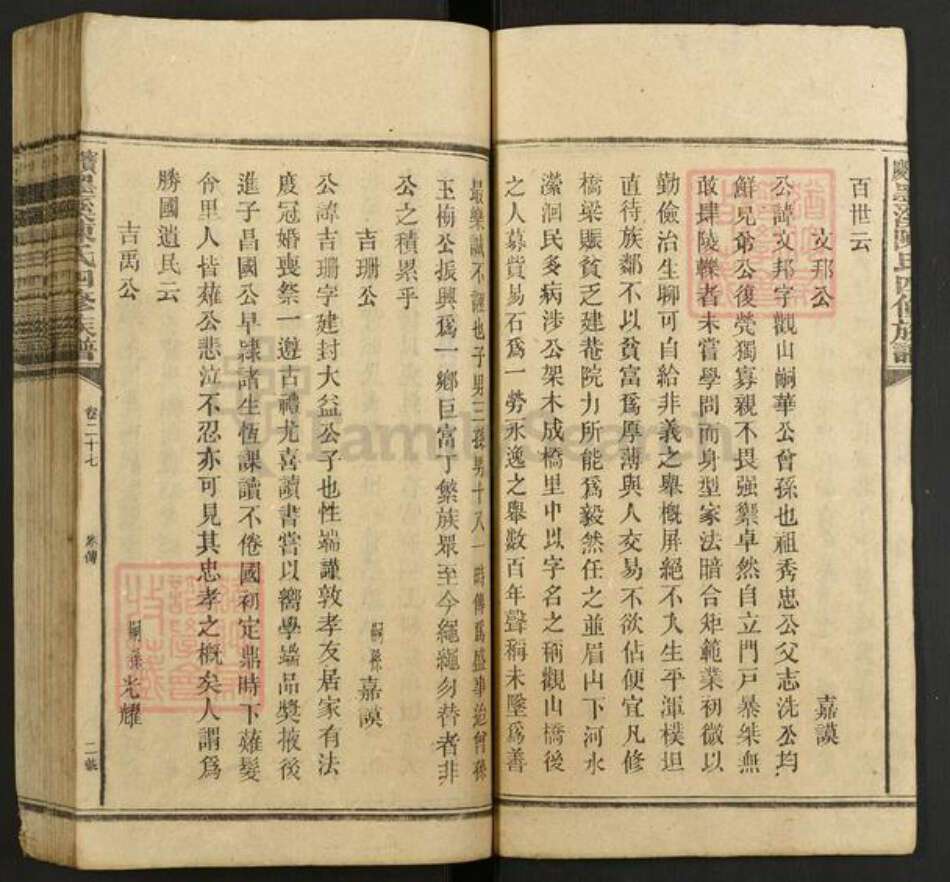 百世云
文邦公
嘉謨
公諱文邦字觀山嗣華公曾孫也祖秀忠公父志洗公均
鮮兄弟公復煢獨寡親不畏强禦卓然自立門戸暴桀無
敢肆陵轢者未嘗學問而身型家法暗合矩範業初微以
勤儉治生聊可自給非義之舉概屏絕不入生平渾樸坦
直待族鄰不以貧富爲厚薄與人交易不欲佔便宜凡修
橋梁賑貧乏建菴院力所能爲毅然任之並眉山下河水
瀠洄民多病涉公架木成橋里中以字名之稱觀山橋後
之人募貲易石爲一勞永逸之舉數百年聲稱未墜爲善
最樂誠不誣也子男三孫男十八一時傳爲盛事迨曾孫
玉梅公振興爲一鄉巨富丁繁族眾至今繩繩勿替者非
公之積累乎
吉珊公
嗣孫嘉謨
公諱吉珊字建封大益公子也性端謹敦孝友居家有法
度冠婚喪祭一遵古禮尤喜讀書嘗以嚮學端品獎掖後
進子昌國公早隸諸生恆課讀不倦國初定鼎時下薙髮
令里人皆薙公悲泣不忍亦可見其忠孝之概矣人謂爲
勝國遺民云
吉禹公
嗣孫光耀
陳氏四修族譜
卷二十七
外傳
FamilySearch